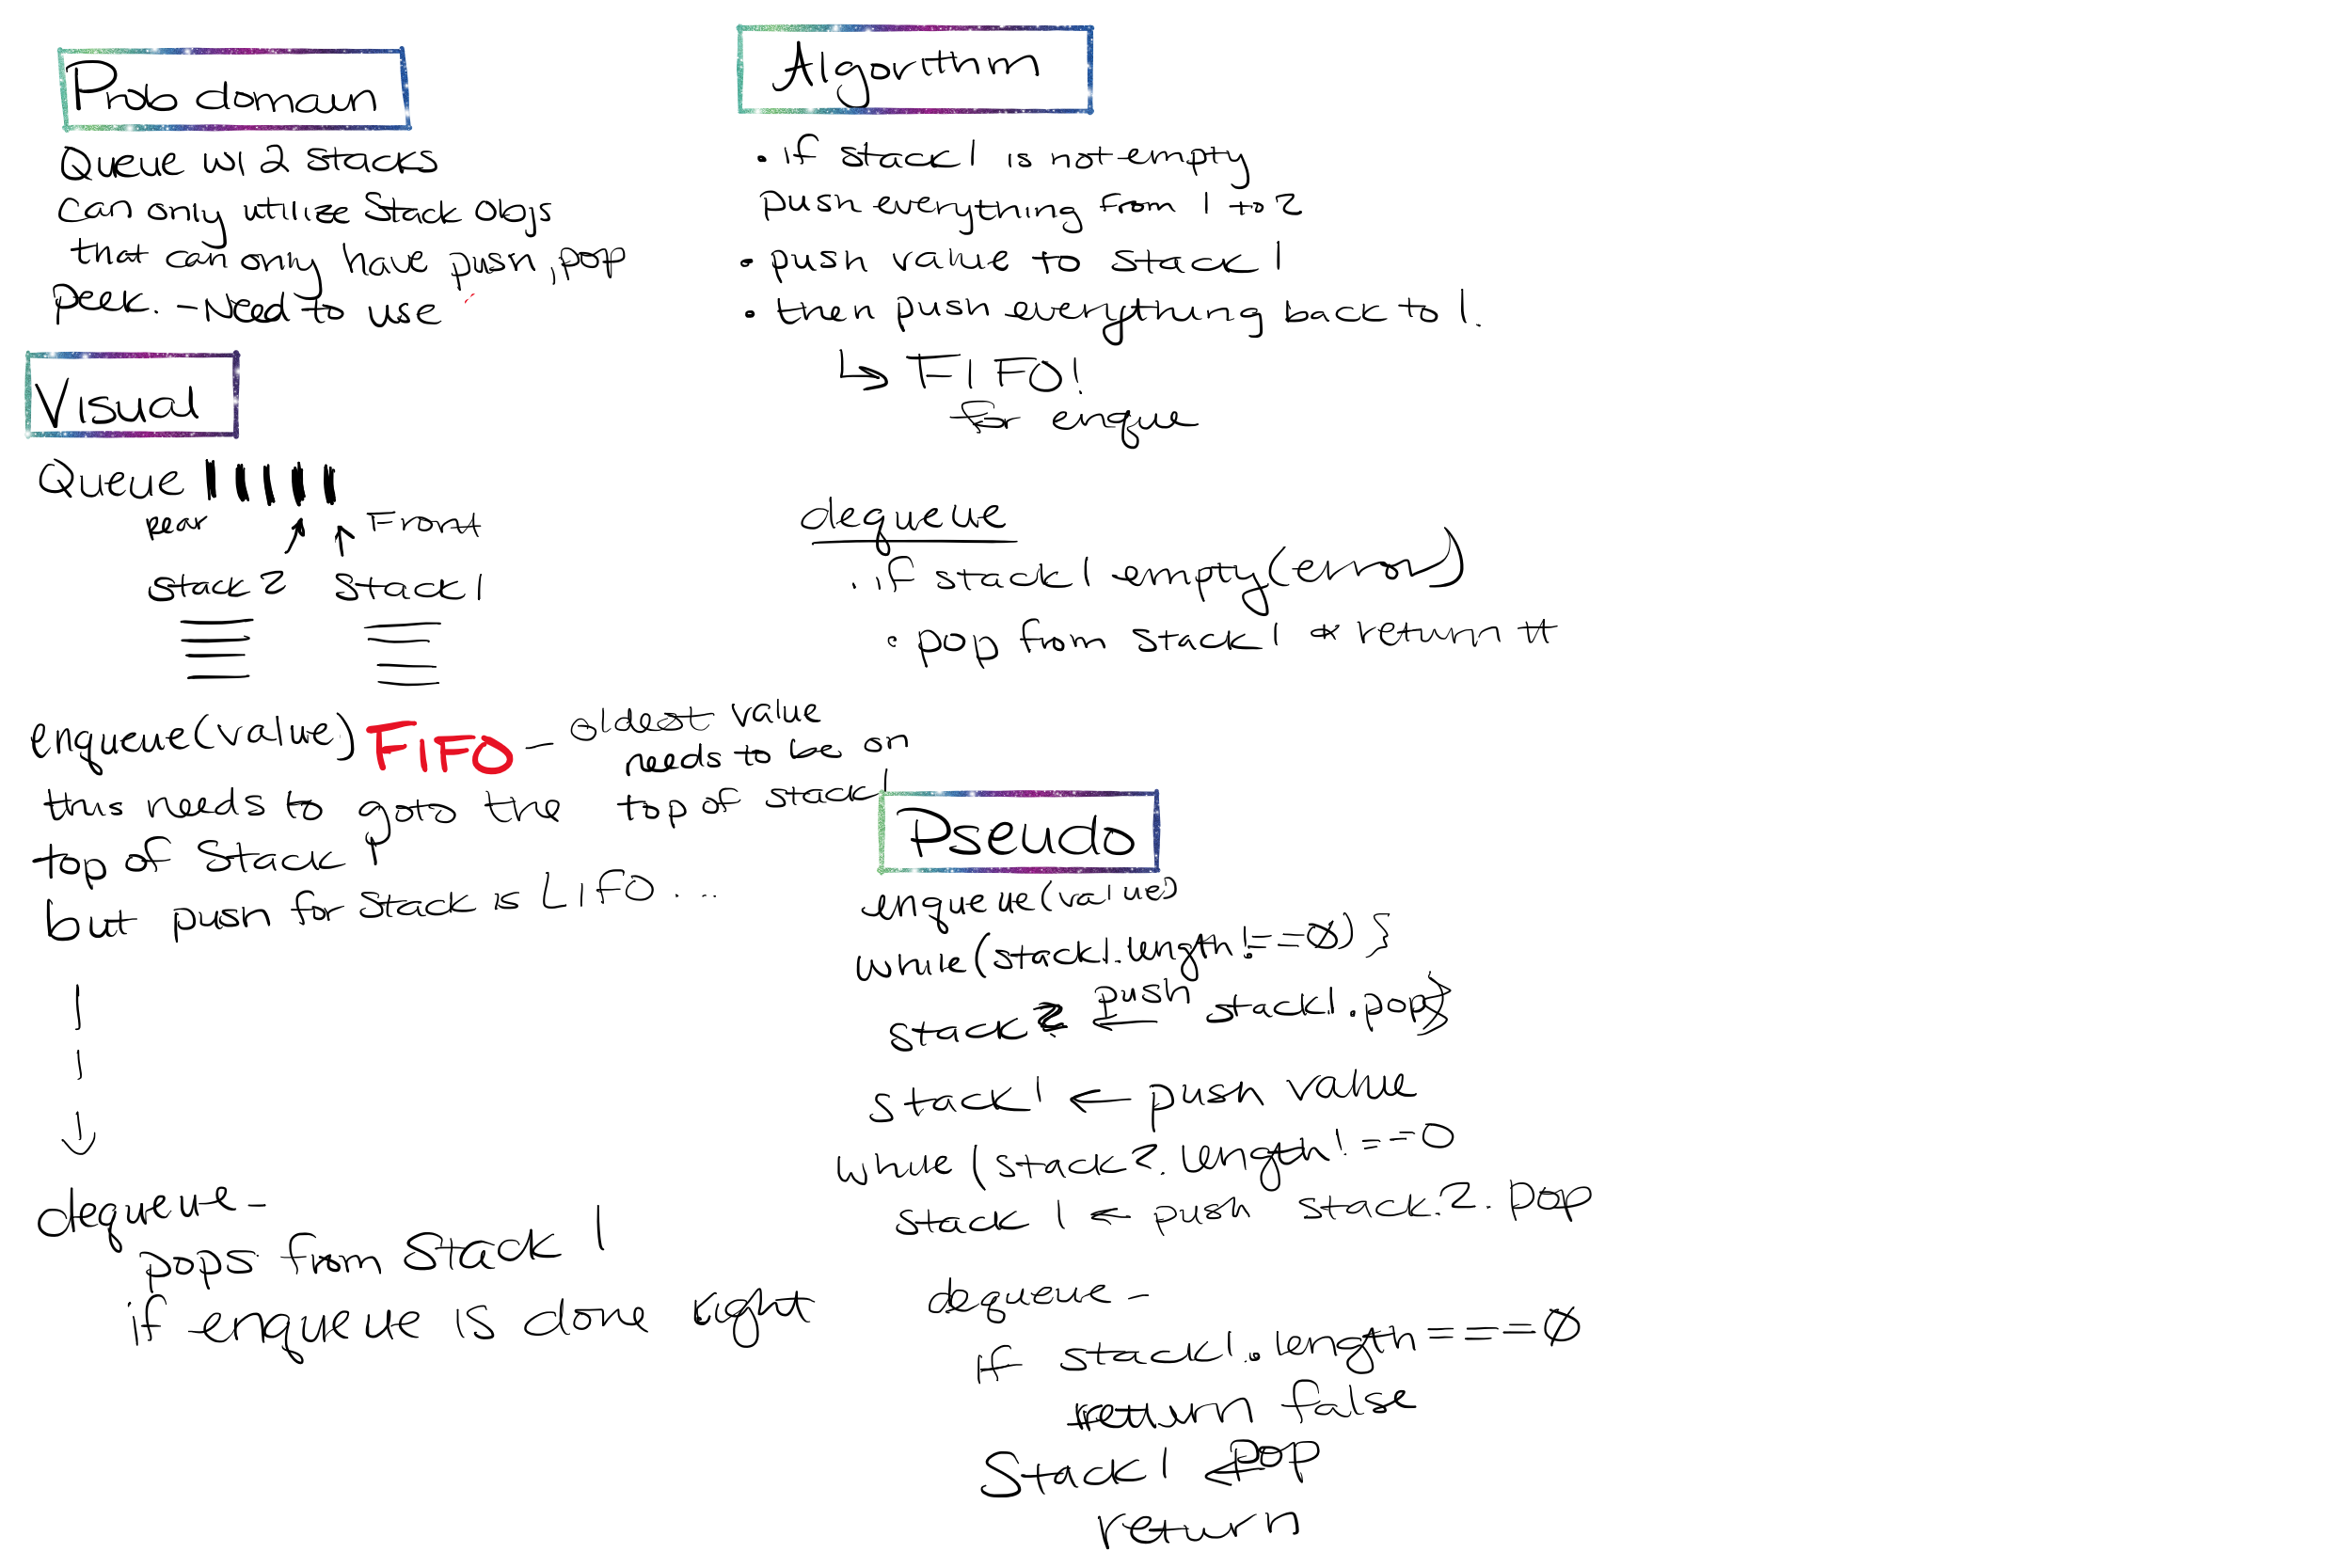 Prob domain
Queue w/ 2 stacks
can only utilize Stack Objs
that can only have push, pop
peek. - Need to use
Visual
Queue
rear
Front
stack 2
Stack 1
enqueue(value) FIFO - oldest value
needs to be on
top of stack 1
this needs to goto the
top of Stack 1
but push for Stack is LIFO ...
dequeue -
pops from Stack 1
if enqueue is done right
Algorithm
• if stack 1 is not empty
push everything from 1 to 2
• push value to stack 1
• then push everything back to 1.
↳ FIFO!
for enque
dequeue
. if stack 1 empty (error)
• pop from stack 1 & return it
Pseudo
enqueue(value)
while(stack1.length!==0) }
stack2 ← push stack1.pop}
stack1 ← push value
while (stack2.length!==0
stack 1 ← push stack.2.pop
dequeue -
if stack1.length===0
return false
Stack1 ← pop
return